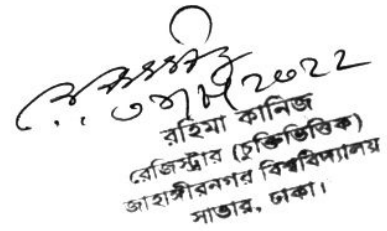 ২০২২
রহিমা কানিজ
রেজিস্ট্রার (চুক্তিভিত্তিক)
জাহাঙ্গীরনগর বিশ্ববিদ্যালয়
সাভার, ঢাকা।